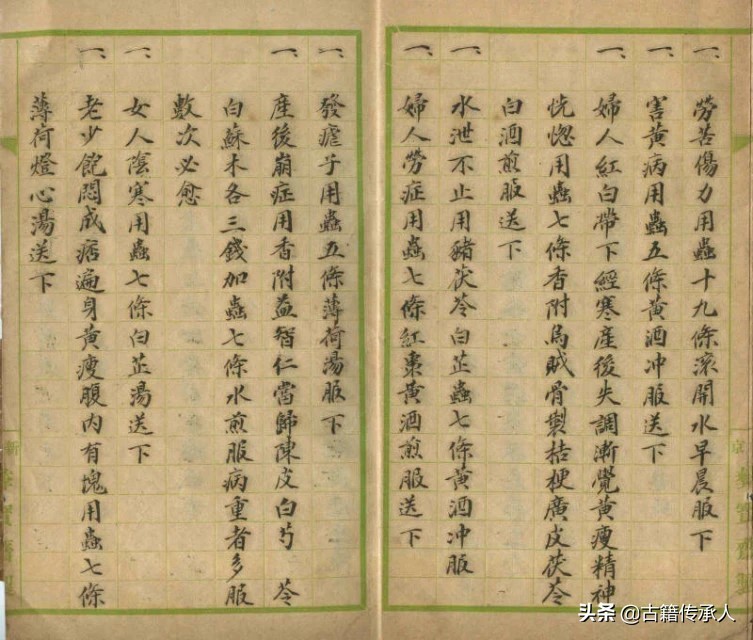 一 勞苦傷力用蟲十九條滾開水早晨服下
一 害黃病用蟲五條黃酒冲服送下
一 婦人紅白帶下經寒產後失調漸覺黃瘦精神
恍惚用蟲七條香附烏賊骨製桔梗廣皮茯苓
白酒煎服送下
一 水泄不止用豬茯苓白芷蟲七條黃酒冲服
一 婦人勞症用蟲七條紅棗黃酒煎服送下
一 發瘧子用蟲五條薄荷湯服下
一 産後崩症用香附益智仁當歸陳皮白芍 苓
白蘇木各三錢加蟲七條水煎服病重者多服
數次必愈
一 女人陰寒用蟲七條白芷湯送下
一 老少飽悶成痞遍身黃瘦腹內有塊用蟲七條
薄荷燈心湯送下
头条 @古籍传承人